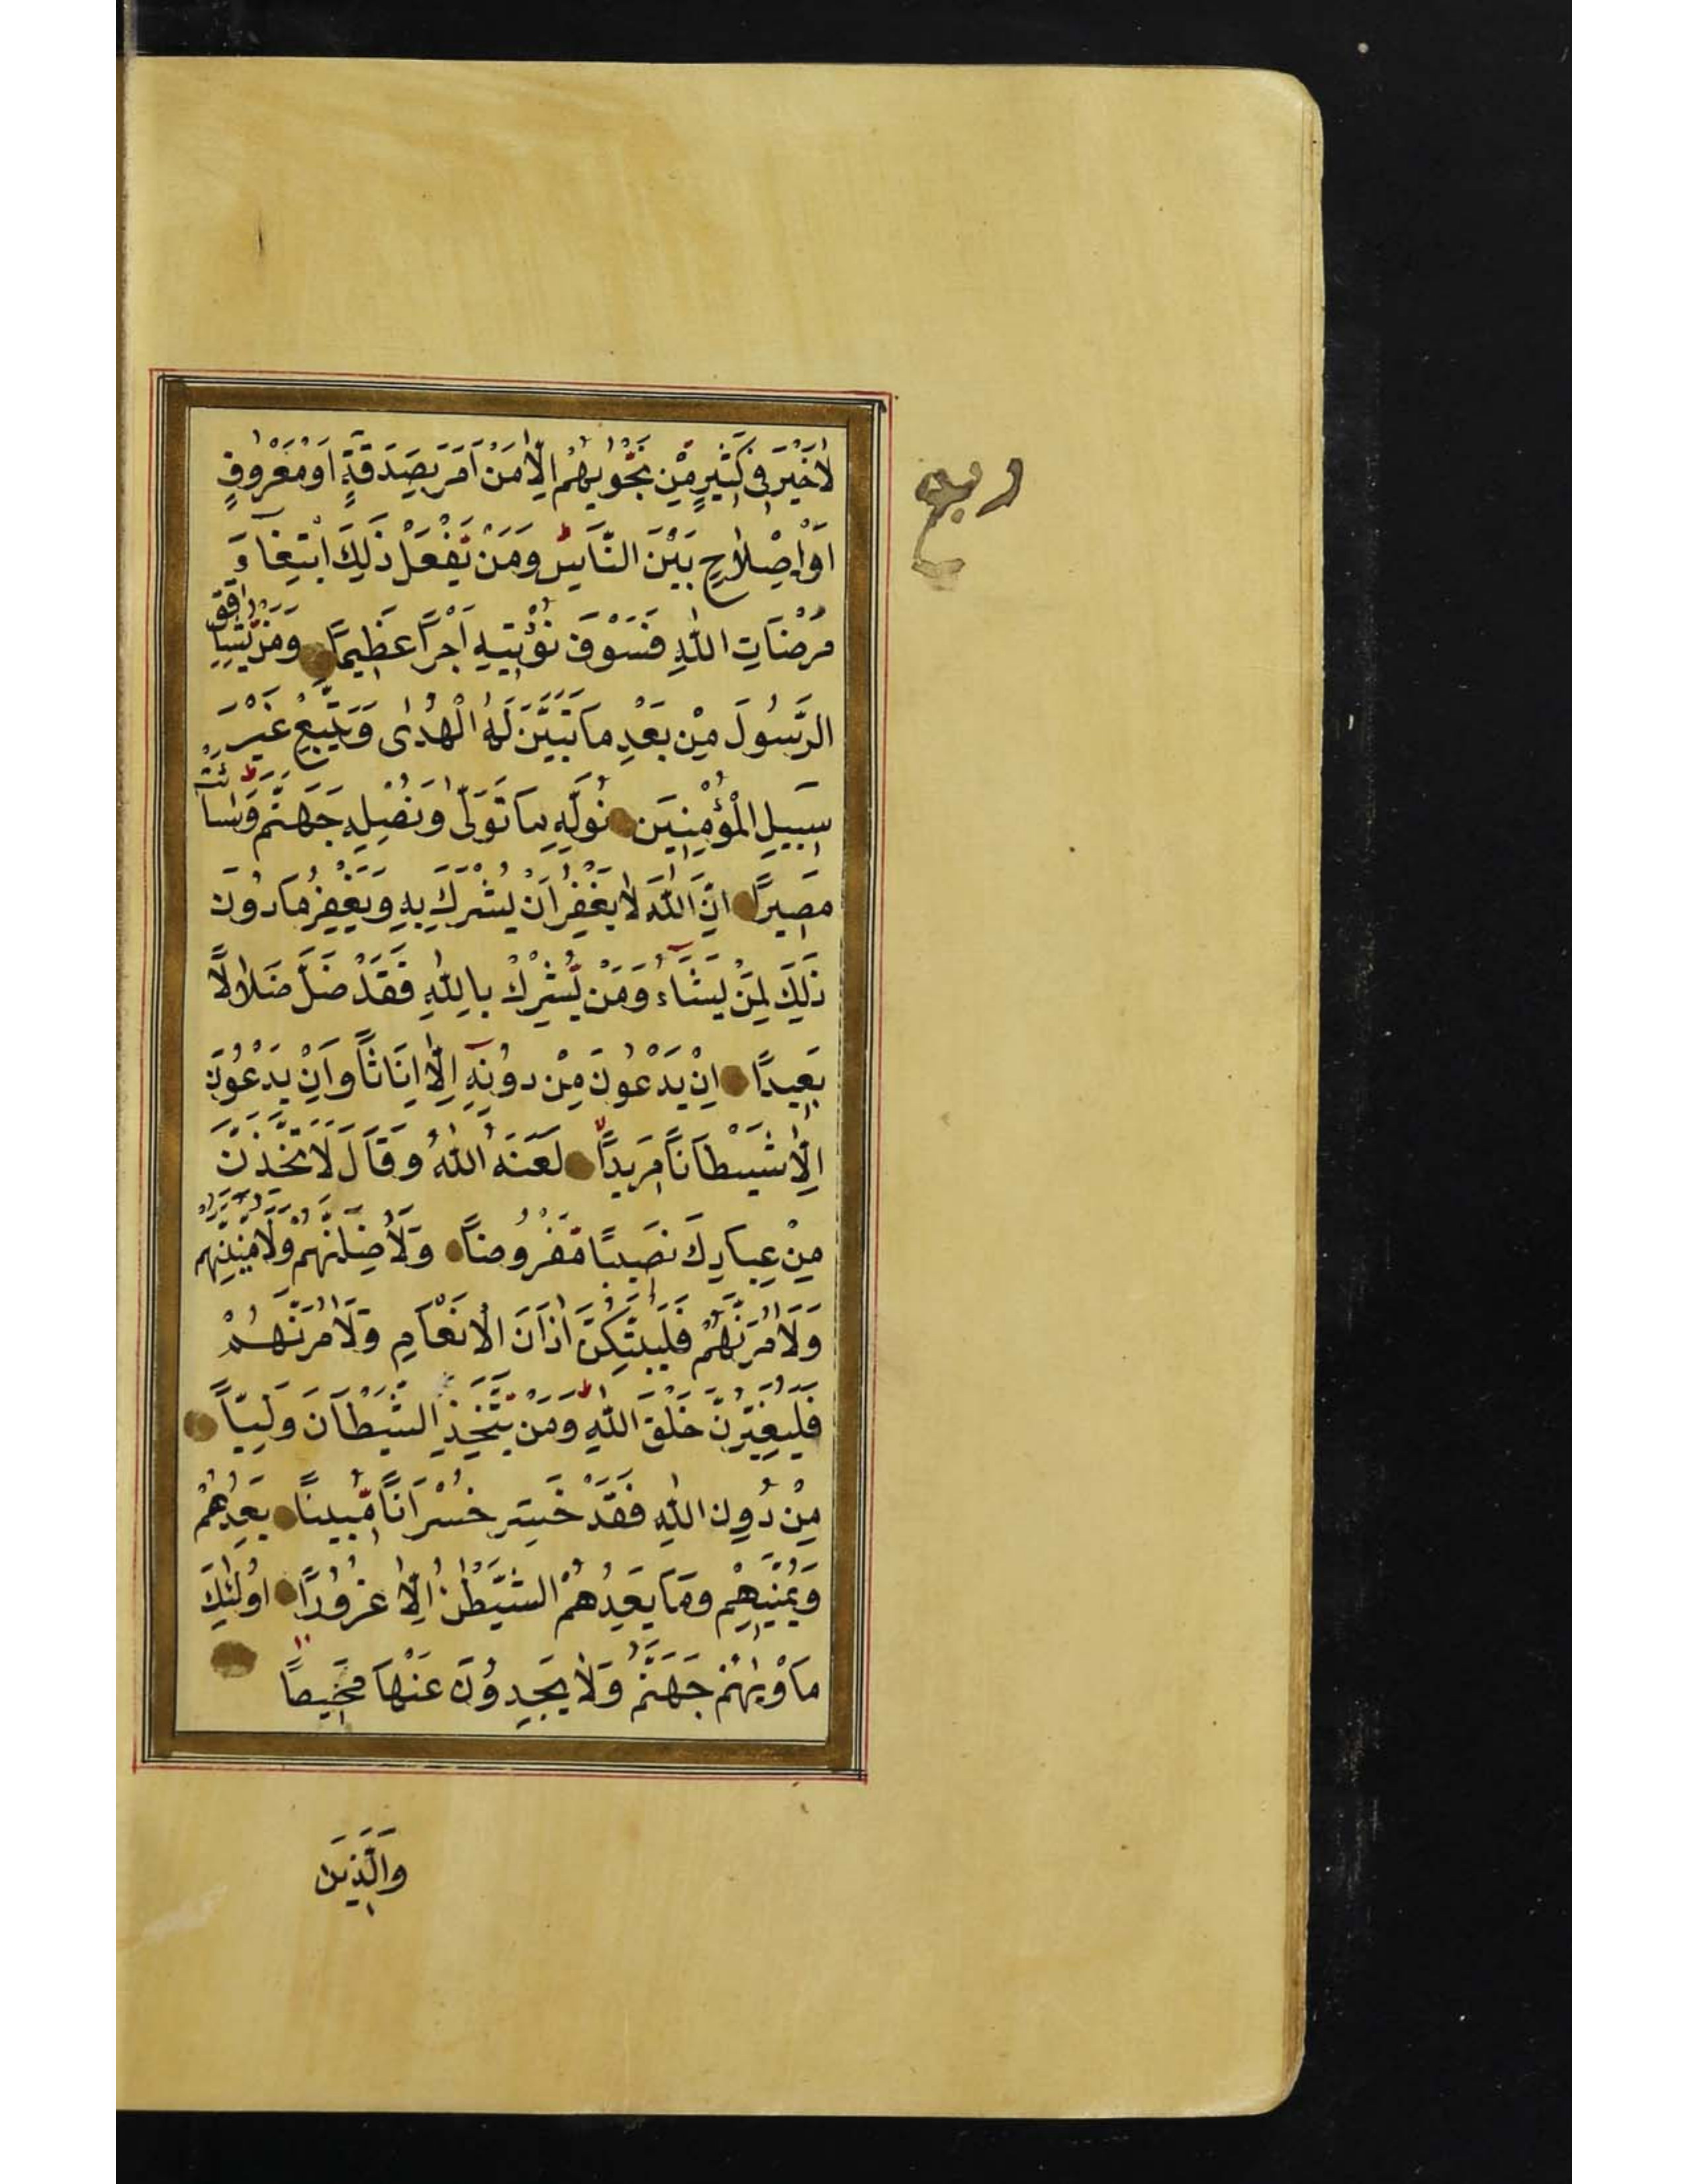 لَا خَيْرَ فِى كَثِيرٍ مِّنْ نَجْوٰيهُمْ اِلَّا مَنْ اَمَرَ بِصَدَقَةٍ اَوْ مَعْرُوفٍ
ربع
اَوْ اِصْلَاحٍ بَيْنَ النَّاسِ ط وَمَنْ يَّفْعَلْ ذٰلِكَ ابْتِغَآءَ
مَرْضَاتِ اللّٰهِ فَسَوْفَ نُؤْتِيهِ اَجْرًا عَظِيمًا وَمَنْ يُّشَاقِقِ
الرَّسُولَ مِنْ بَعْدِ مَا تَبَيَّنَ لَهُ الْهُدٰى وَيَتَّبِعْ غَيْرَ
سَبِيلِ الْمُؤْمِنِينَ نُوَلِّهِ مَا تَوَلّٰى وَنُصْلِهِ جَهَنَّمَ ط وَسَائَتْ
مَصِيرًا اِنَّ اللّٰهَ لَا يَغْفِرُ اَنْ يُشْرَكَ بِهِ وَيَغْفِرُ مَا دُونَ
ذٰلِكَ لِمَنْ يَشَآءُ وَمَنْ يُّشْرِكْ بِاللّٰهِ فَقَدْ ضَلَّ ضَلَالًا
بَعِيدًا اِنْ يَدْعُونَ مِنْ دُونِهِٓ اِلَّا اِنَاثًا وَاِنْ يَدْعُونَ
اِلَّا شَيْطَانًا مَرِيدًا لَعَنَهُ اللّٰهُ وَقَالَ لَاَتَّخِذَنَّ
مِنْ عِبَادِكَ نَصِيبًا مَّفْرُوضًا وَلَاُضِلَّنَّهُمْ وَلَاُمَنِّيَنَّهُمْ
وَلَاٰمُرَنَّهُمْ فَلَيُبَتِّكُنَّ اٰذَانَ الْاَنْعَامِ وَلَاٰمُرَنَّهُمْ
فَلَيُغَيِّرُنَّ خَلْقَ اللّٰهِ ط وَمَنْ يَّتَّخِذِ الشَّيْطَانَ وَلِيًّا
مِنْ دُونِ اللّٰهِ فَقَدْ خَسِرَ خُسْرَانًا مُّبِينًا يَعِدُهُمْ
وَيُمَنِّيهِمْ وَمَا يَعِدُهُمُ الشَّيْطٰنُ اِلَّا غُرُورًا اُولٰئِكَ
مَاْوٰيهُمْ جَهَنَّمُ وَلَا يَجِدُونَ عَنْهَا مَحِيصًا
وَالَّذِينَ